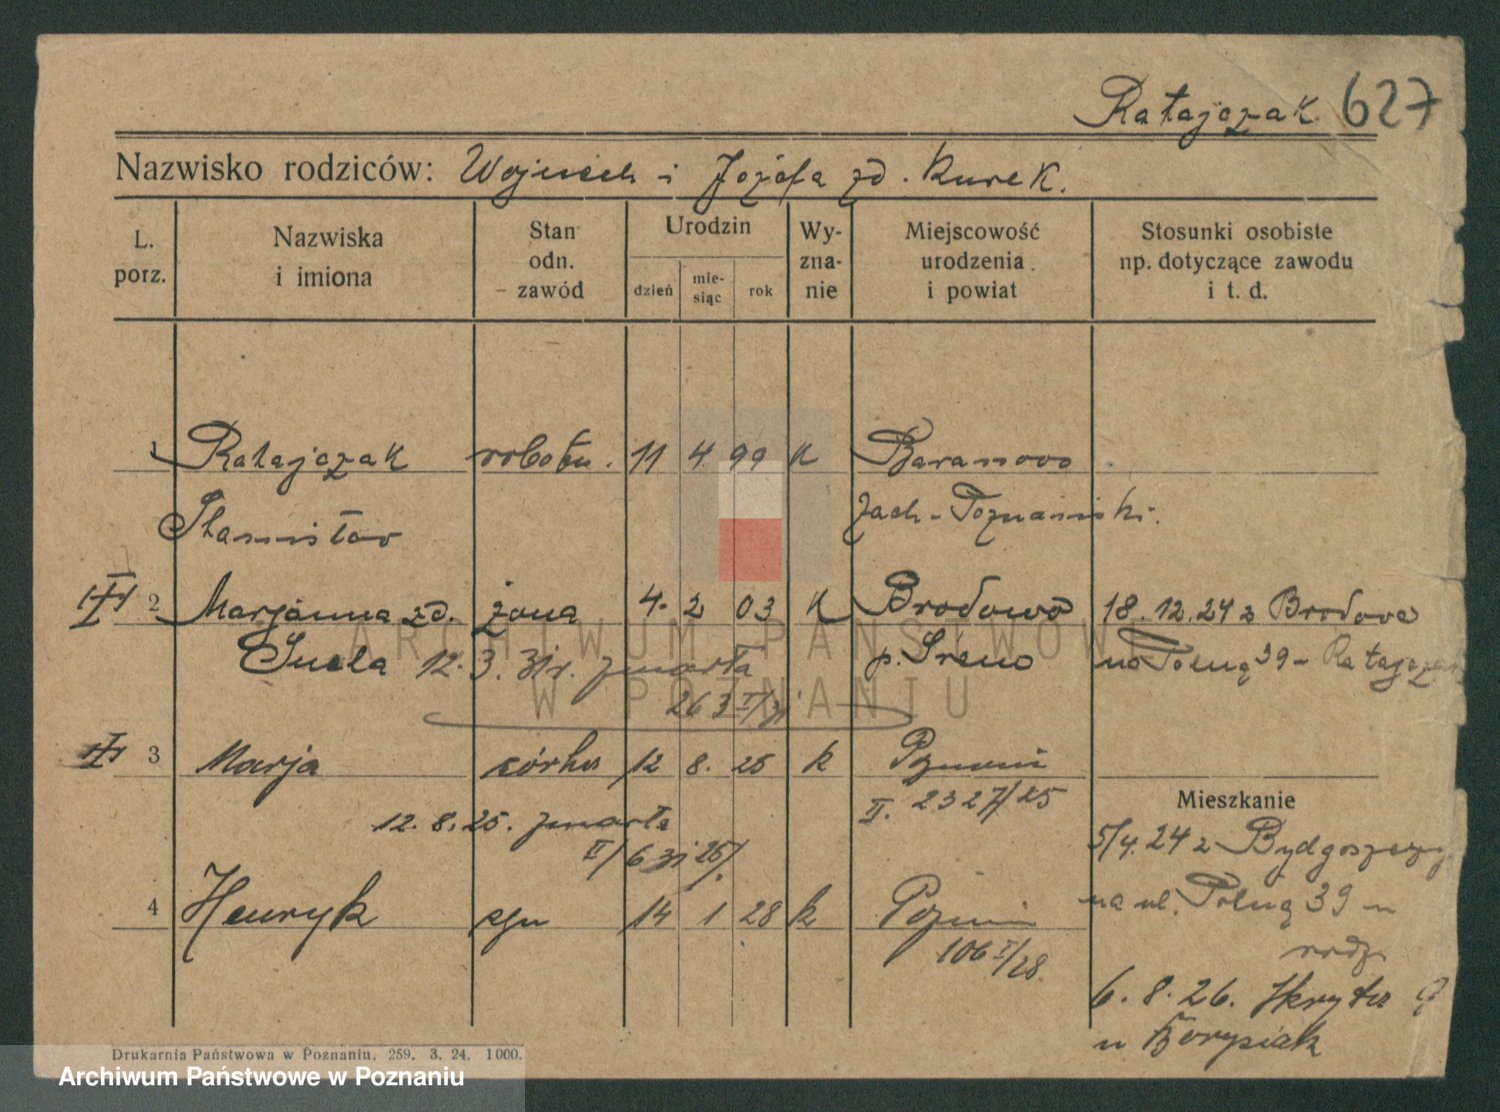 Ratajczak 627
Nazwisko rodziców: Wojciech i Józefa zd. Kurek.
L. porz.
Nazwiska i imiona
Stan odn. zawód
Urodzin
dzień
mie-siąc
rok
Wy-zna-nie
Miejscowość urodzenia i powiat
Stosunki osobiste np. dotyczące zawodu i t. d.
1 Ratajczak robotn. 11 4 99 k Baranowo
Stanisław Zach-Poznański.
2 Marjanna zd. żona 4. 2 03 k Brodowo 18.12.24 z Brodowa
12.3.31r. zmarła p. Śrem na Polną 39 - Ratajczak
263 I/31
3 Marja córka 12 8. 25 k Poznań
II. 2327/25
12.8.25. zmarła
II/ 25/.
Mieszkanie
5/4.24 z Bydgoszczy
4 Henryk syn 14 1 28 k Poznań
na ul. Polną 39 u
106 I/28
rodz.
6.8.26. Skryta
u Borysiak
ARCHIWUM PAŃSTWOWE
W POZNANIU
Drukarnia Państwowa w Poznaniu. 259. 3. 24. 1000.
Archiwum Państwowe w Poznaniu